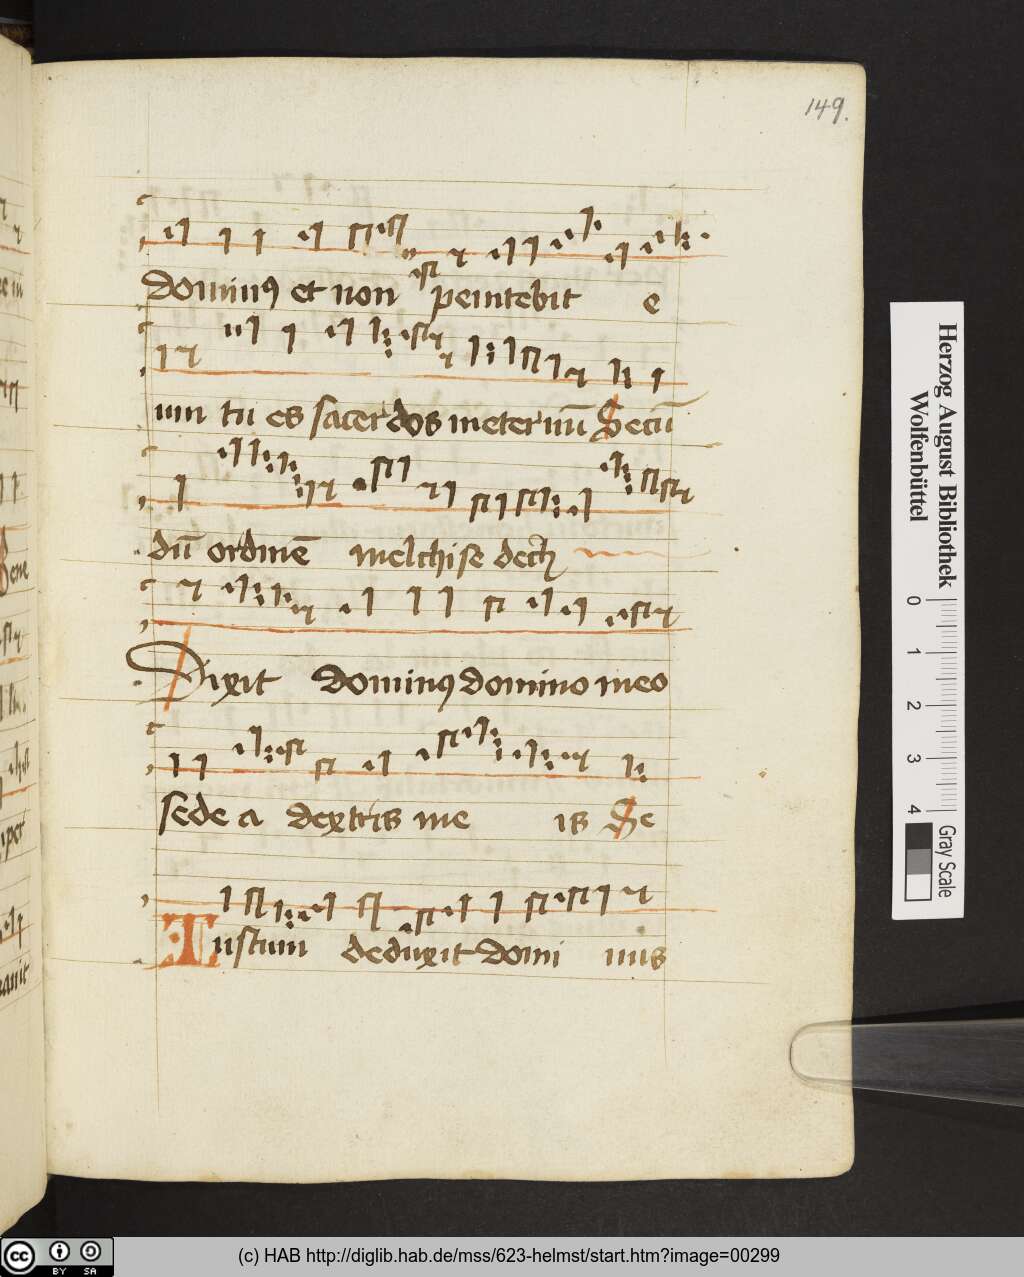 149.
dominꝰ et non penitebit e
um tu es sacerdos ineternū Secū
dū ordinē melchisedech
Dixit dominꝰ domino meo
sede a dextris me is Se
Iustum deduxit domi nus
Herzog August Bibliothek
Wolfenbüttel
0 1 2 3 4
Gray Scale
cc BY SA
(c) HAB http://diglib.hab.de/mss/623-helmst/start.htm?image=00299